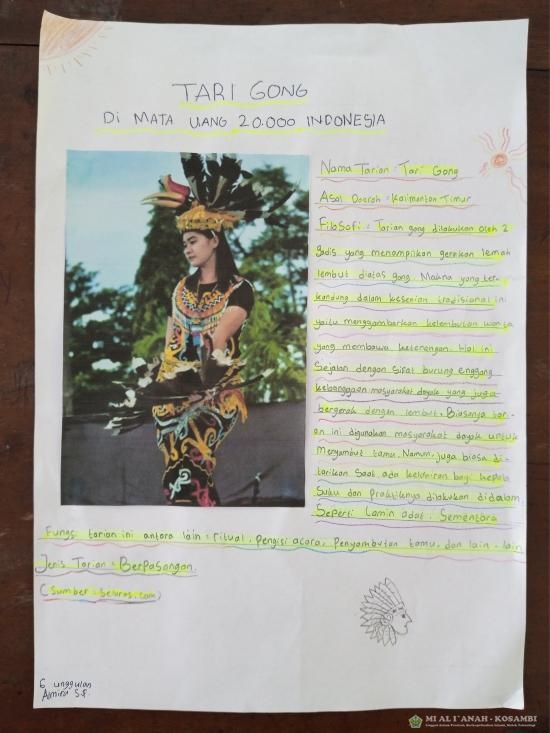 TARI GONG
Di MATA UANG 20.000 INDONESIA
Nama Tarian : Tari Gong
Asal Daerah : Kalimantan Timur
Filosofi : Tarian gong dilakukan oleh 2
gadis yang menampilkan gerakan lemah
lembut diatas gong. Makna yang ter-
kandung dalam kesenian tradisional ini
yaitu menggambarkan kelembutan wanita
yang membawa ketenangan. Hal ini
Sejalan dengan sifat burung enggang
kebanggaan masyarakat dayak yang juga
bergerak dengan lembut. Biasanya tari-
an ini digunakan masyarakat dayak untuk
menyambut tamu. Namun, juga biasa di-
tarikan saat ada kelahiran bagi kepala
suku dan praktiknya dilakukan didalam
Seperti Lamin adat. Sementara
Fungsi tarian ini antara lain : ritual, pengisi acara, penyambutan tamu, dan lain-lain
Jenis Tarian : Berpasangan.
(Sumber : Selures.com)
6 unggulan
Almira S.F.
MI AL I'ANAH - KOSAMBI